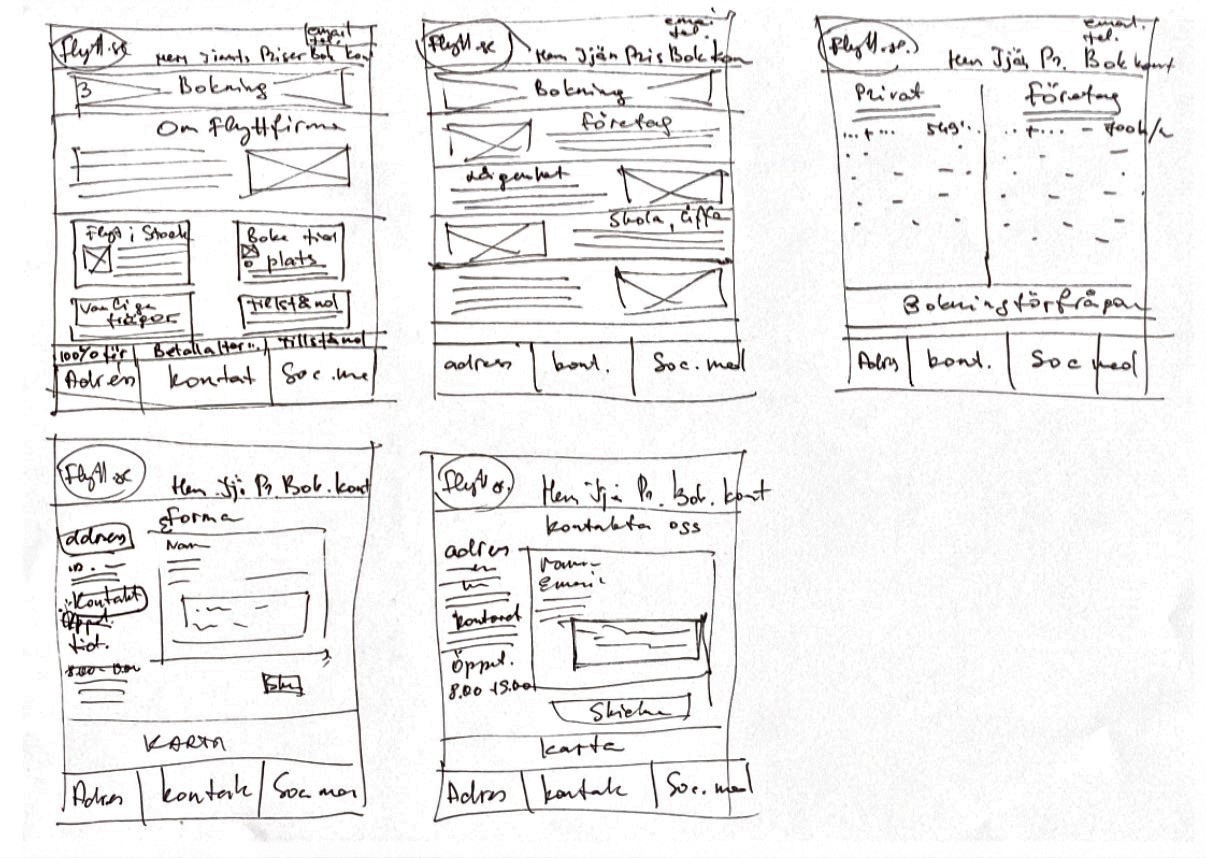 Flytt.se
email
tel.
Hem Tjänts Priser Bok kont
3 Bokning
Om Flyttfirma
Flytt i Stock
Boka tid
plats
Vanliga
frågor
tillstånd
100% för
Betala
tillstånd
Adres
kontakt
Soc. me
Flytt.se
emai
tel.
Hem Tjän Pris Bok kon
Bokning
företag
Lägenhet
Skola,
adress
kont.
Soc. med
Flytt.se
email.
tel.
Hem Tjän Pr. Bok kont
Privat
företag
549
Bokningsförfrågan
Adres
kont.
Soc med
Flytt.se
Hem Tjä. Pr. Bok. kont
forma
addres
Nam
Kontakt
Öppet
tid.
KARTA
Adres
kontak
Soc. me
Flytt.se
Hem Tjä Pr. Bok. kont
kontakta oss
adres
Namn
Email
kontakt
Öppet.
8.00-15.00
Skicka
karta
Adres
kontak
Soc. med